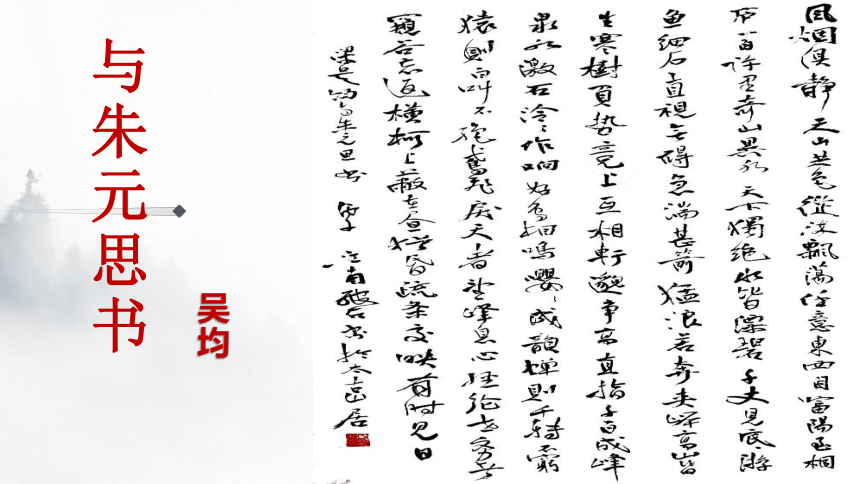 与朱元思书
吴均
風烟俱静天山共色從流飄荡任意東西自富陽至桐
庐百许里奇山異水天下獨绝水皆漂碧千丈見底游
鱼细石直視无碍急湍甚箭猛浪若奔夹岸高山皆
生寒樹負势竞上互相轩邈争高直指千百成峰
泉水激石泠々作响好鸟相鳴嘤々成韻蝉則千转不窮
猿則百叫不绝鸢飛戾天者望峰息心经纶世务者
窥谷忘返横柯上蔽在昼犹昏疏条交映有时见日
梁吴均与朱元思书